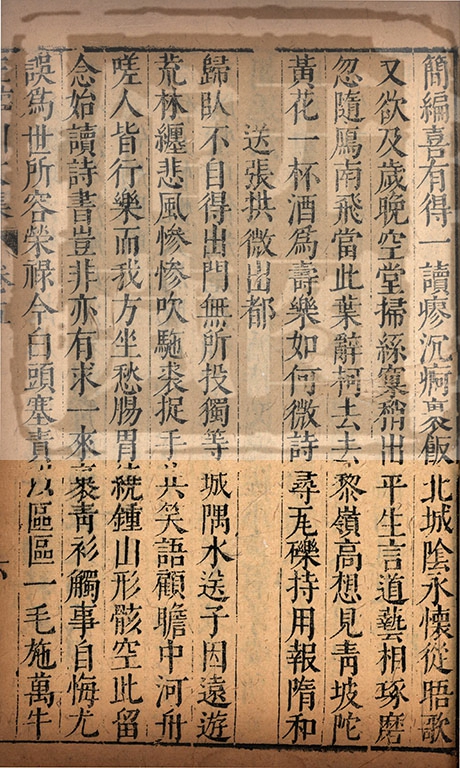 簡編喜有得一讀瘳沉痾褁飯北城陰永懷從晤歌
又欲及歲晚空堂掃絲窠稍出平生言道藝相琢磨
忽隨鴈南飛當此葉辭柯去去黎嶺高想見靑坡陀
黃花一杯酒爲壽樂如何微詩尋瓦礫持用報隋和
送張拱微出都
歸臥不自得出門無所投獨等城隅水送子因遠遊
荒林纏悲風慘慘吹馳裘捉手共笑語顧瞻中河舟
嗟人皆行樂而我方坐愁腸胃繞鍾山形骸空此留
念始讀詩書豈非亦有求一來裹靑衫觸事自悔尤
誤爲世所容榮祿今白頭塞責以區區一毛施萬牛